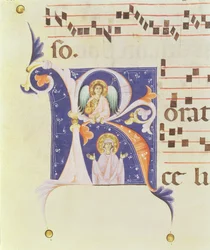 so.
R
orate
ce li